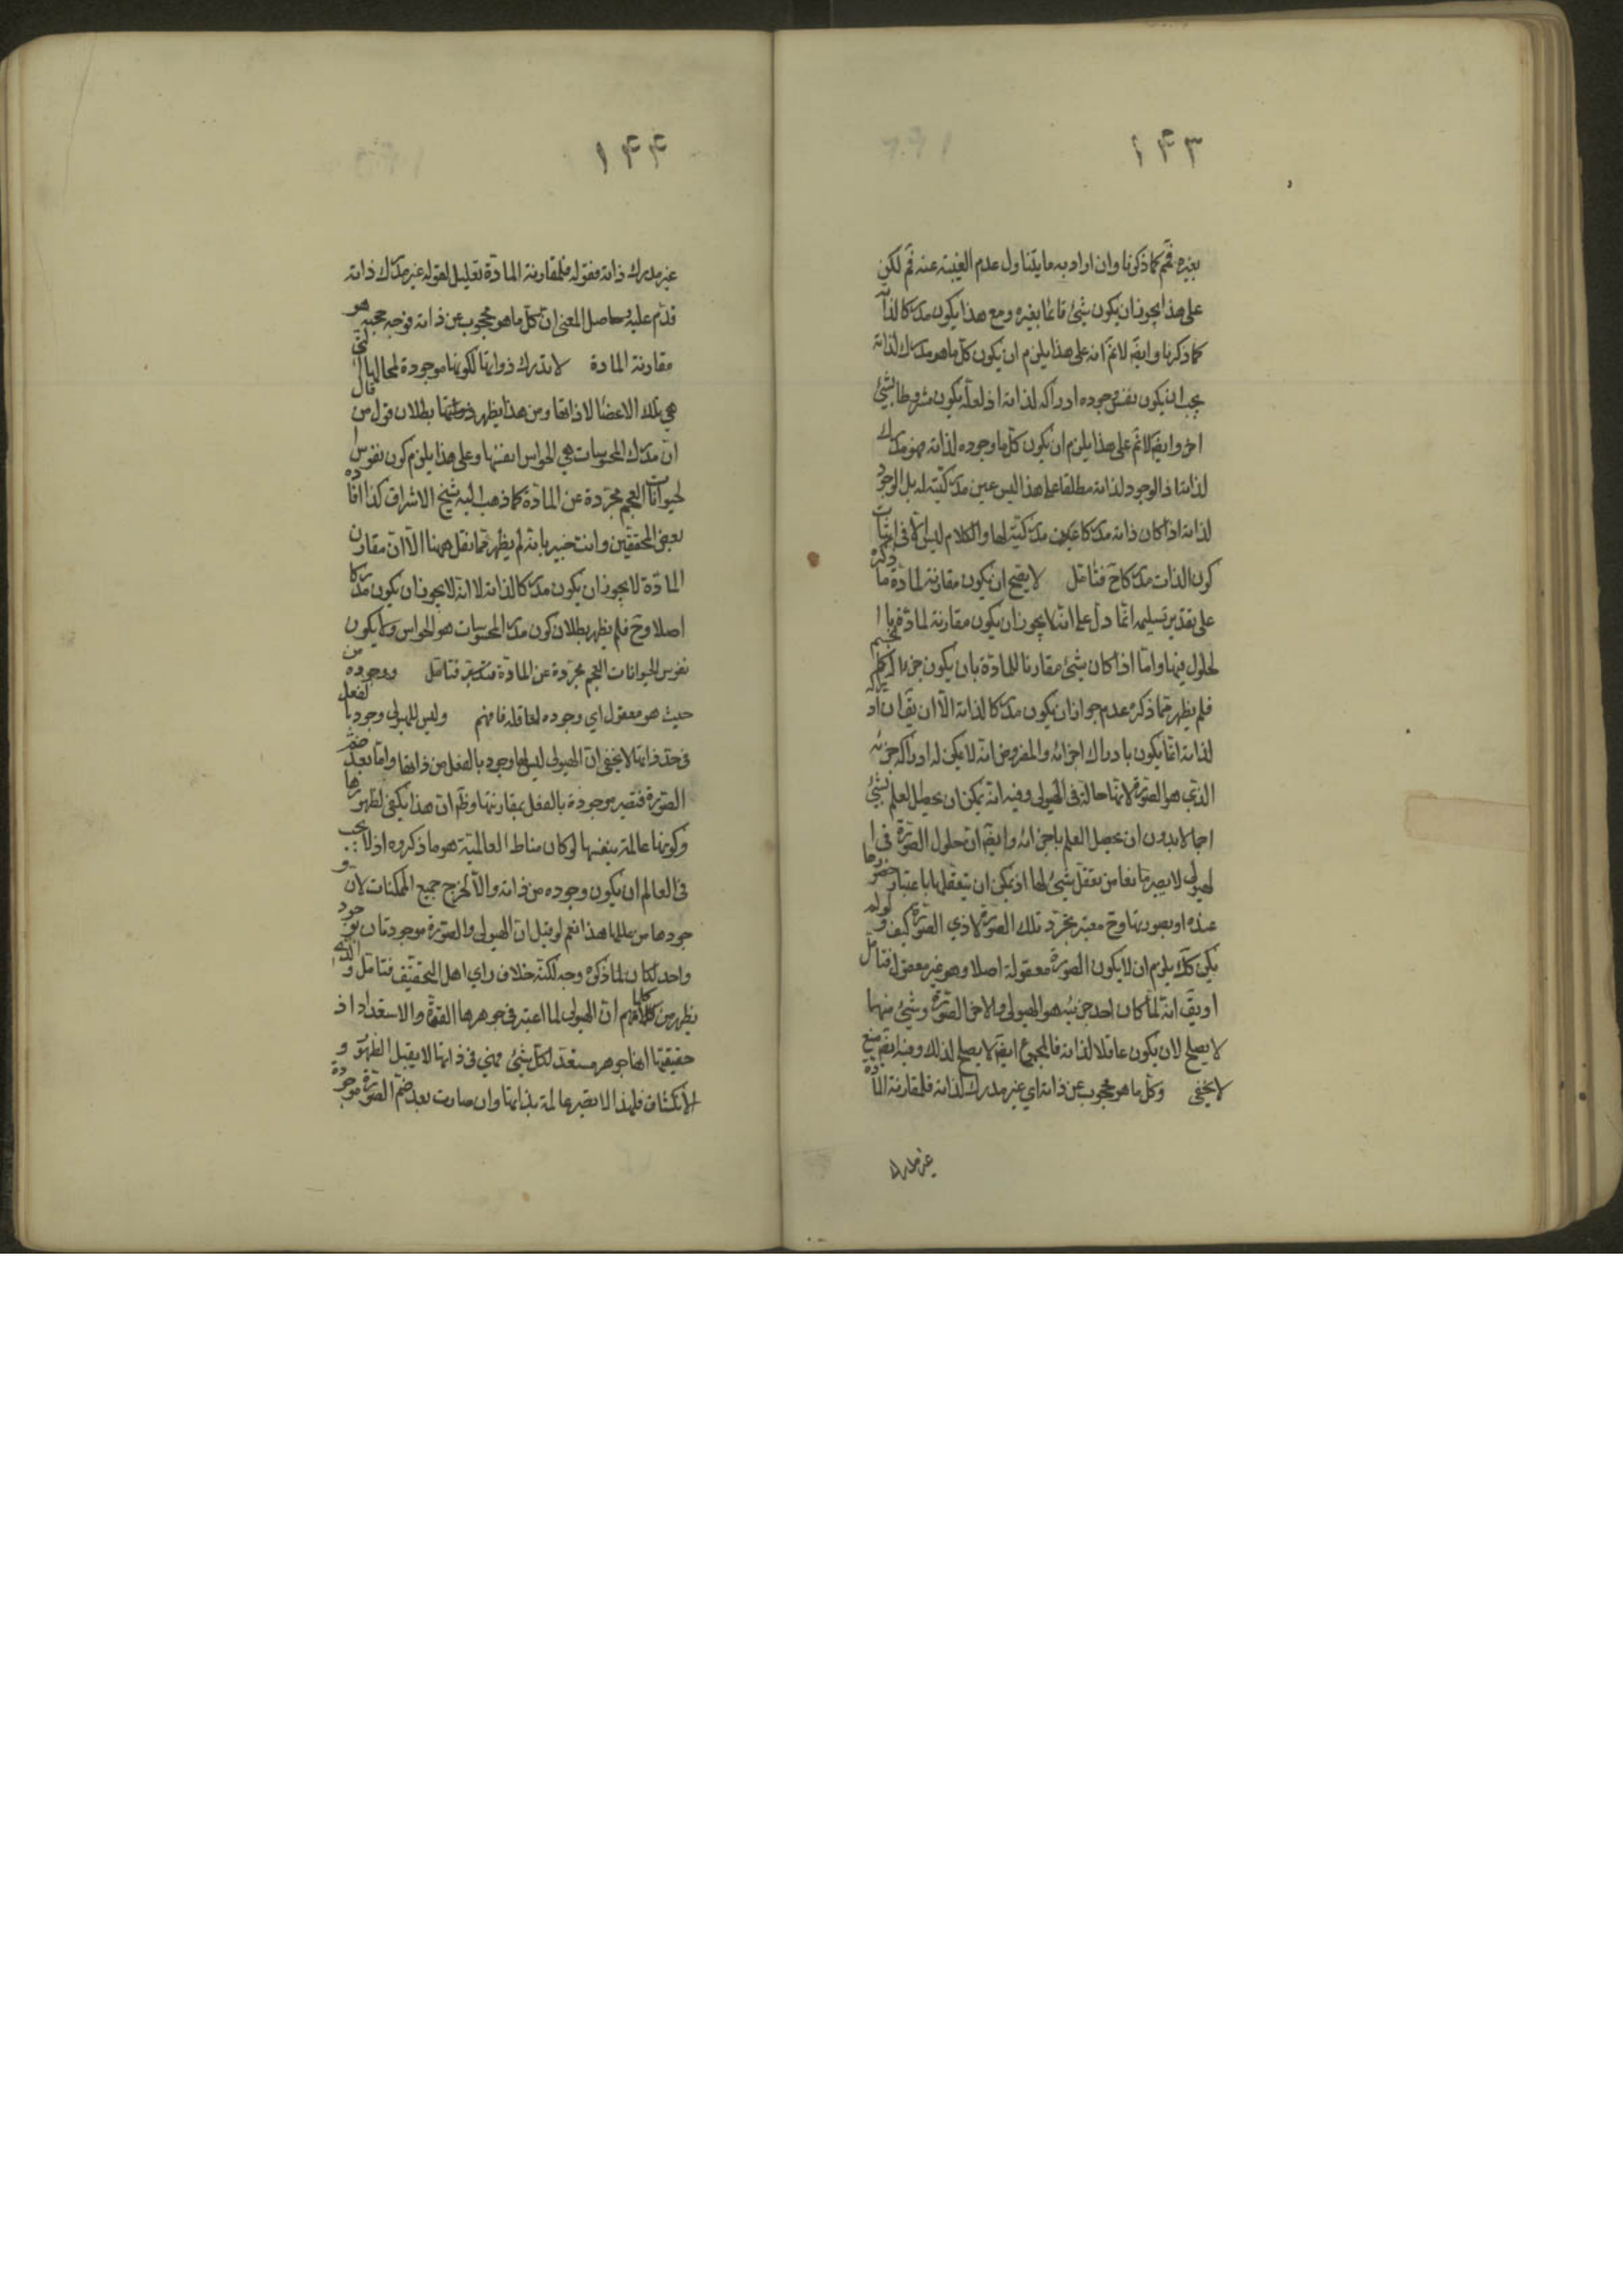 ١۴٣
بغيره فمم كما ذكرنا وان اراد به ما يتناول عدم الغيبة عنه فم لكن
على هذا يجوز ان يكون شيئ قائما بغيره ومع هذا يكون مدركا لذا
كما ذكرنا وايضَ لانمَ انه على هذا يلزم ان يكون كل ما هو مدرك لذاته
يجب ان يكون نفس وجوده ادراكه لذاته اذ لعله يكون مشروطا بشيئ
اخر وايضَ لانمَ على هذا يلزم ان يكون كل ما وجوده لذاته فهو مدرك
لذاته اذ الوجود لذاته مطلقا على هذا ليس عين مدركيته له بل الوجود
لذاته اذا كان ذاته مدركا عين مدركيته لها والكلام ليس الا فى اثبات
كون الذات مدركا حَ فتامل لا يصح ان يكون مقارنة لمادة ما ذكره
على تقدير تسليمه انما دل على انه لا يجوز ان يكون مقارنة لمادة با
لحلول فيها واما اذا كان شيئ مقارنا للمادة بان يكون جزءا له كالجسم
فلم يظهر مما ذكره عدم جواز ان يكون مدركا لذاته الا ان يقَ ان ادراكه
لذاته انما يكون بادراك اجزائه والمفروض انه لا يمكن له ادراك جزئه
الذي هو الصورة لانها حالة فى الهيولى وفيه انه يمكن ان يحصل العلم بشيئ
اجمالا بدون ان يحصل العلم باجزائه وايضَ ان حلول الصورة فى ا
لهيولى لا يصير مانعا من تعقل شيئ لها اذ يمكن ان يتعقلها باعتبار حضورها
عنده او بصورتها وحَ معتبر تجرد تلك الصورة لا ذي الصورة كيف ولو لم
يكن كك يلزم ان لا يكون الصورة معقولة اصلا وهو غير معقول فتامل
او يقَ انه لما كان احد جزئيه هو الهيولى والاخر الصورة وشيئ منهما
لا يصلح لان يكون عاقلا لذاته فالمجموع ايضَ لا يصلح لذلك وفيه ايضَ منع
لا يخفى وكل ما هو محجوب عن ذاته اي غير مدرك لذاته فلمقارنة المادة
غير مدرك
١۴۴
غير مدرك ذاته فقوله فلمقارنة المادة تعليل لقوله غير مدرك ذاته
قدم عليه وحاصل المعنى ان كل ما هو محجوب عن ذاته فوجه حجبه هو
مقارنة المادة لا تدرك ذواتها لكونها موجودة لمحالها التي
هي تلك الاعضا لا ذاتها ومن هذا يظهر بطلان قول من قال
ان مدرك المحسوسات هي الحواس انفسها وعلى هذا يلزم كون نفوس ا
لحيوانات العجم مجردة عن المادة كما ذهب اليه شيخ الاشراق كذا افاده
بعض المحققين وانت خبير بانه لم يظهر مما نقل ههنا الا ان مقارن
المادة لا يجوز ان يكون مدركا لذاته لا انه لا يجوز ان يكون مدركا
اصلا وحَ فلم يظهر بطلان كون مدرك المحسوسات هو الحواس ولا يكون
نفوس الحيوانات العجم مجردة عن المادة فتامل ووجوده من
حيث هو معقول اي وجوده لعاقله فافهم وليس للهيولى وجود بالفعل
فى حد ذاتها لا يخفى ان الهيولى ليس لها وجود بالفعل من ذاتها واما بعد ضم
الصورة فتصير موجودة بالفعل بمقارنتها وظَ ان هذا يكفى لظهورها
وكونها عالمة بنفسها لو كان مناط العالمية هو ما ذكروه اذ لا يجب
فى العالم ان يكون وجوده من ذاته والا لخرج جميع الممكنات لان و
جودها من عللها هذا نعم لو قيل ان الهيولى والصورة موجودتان بوجود
واحد لكان لما ذكره وجه لكنه خلاف راي اهل التحقيق فتامل والذي
يظهر من كلامهم ان الهيولى لما اعتبر فى جوهرها القوة والاستعداد اذ
حقيقتها انها جوهر مستعد لكل شيئ فهي فى ذاتها لا يقبل الظهور و
الانكشاف فلهذا لا تصير عالمة بذاتها وان صارت بعد ضم الصورة موجودة